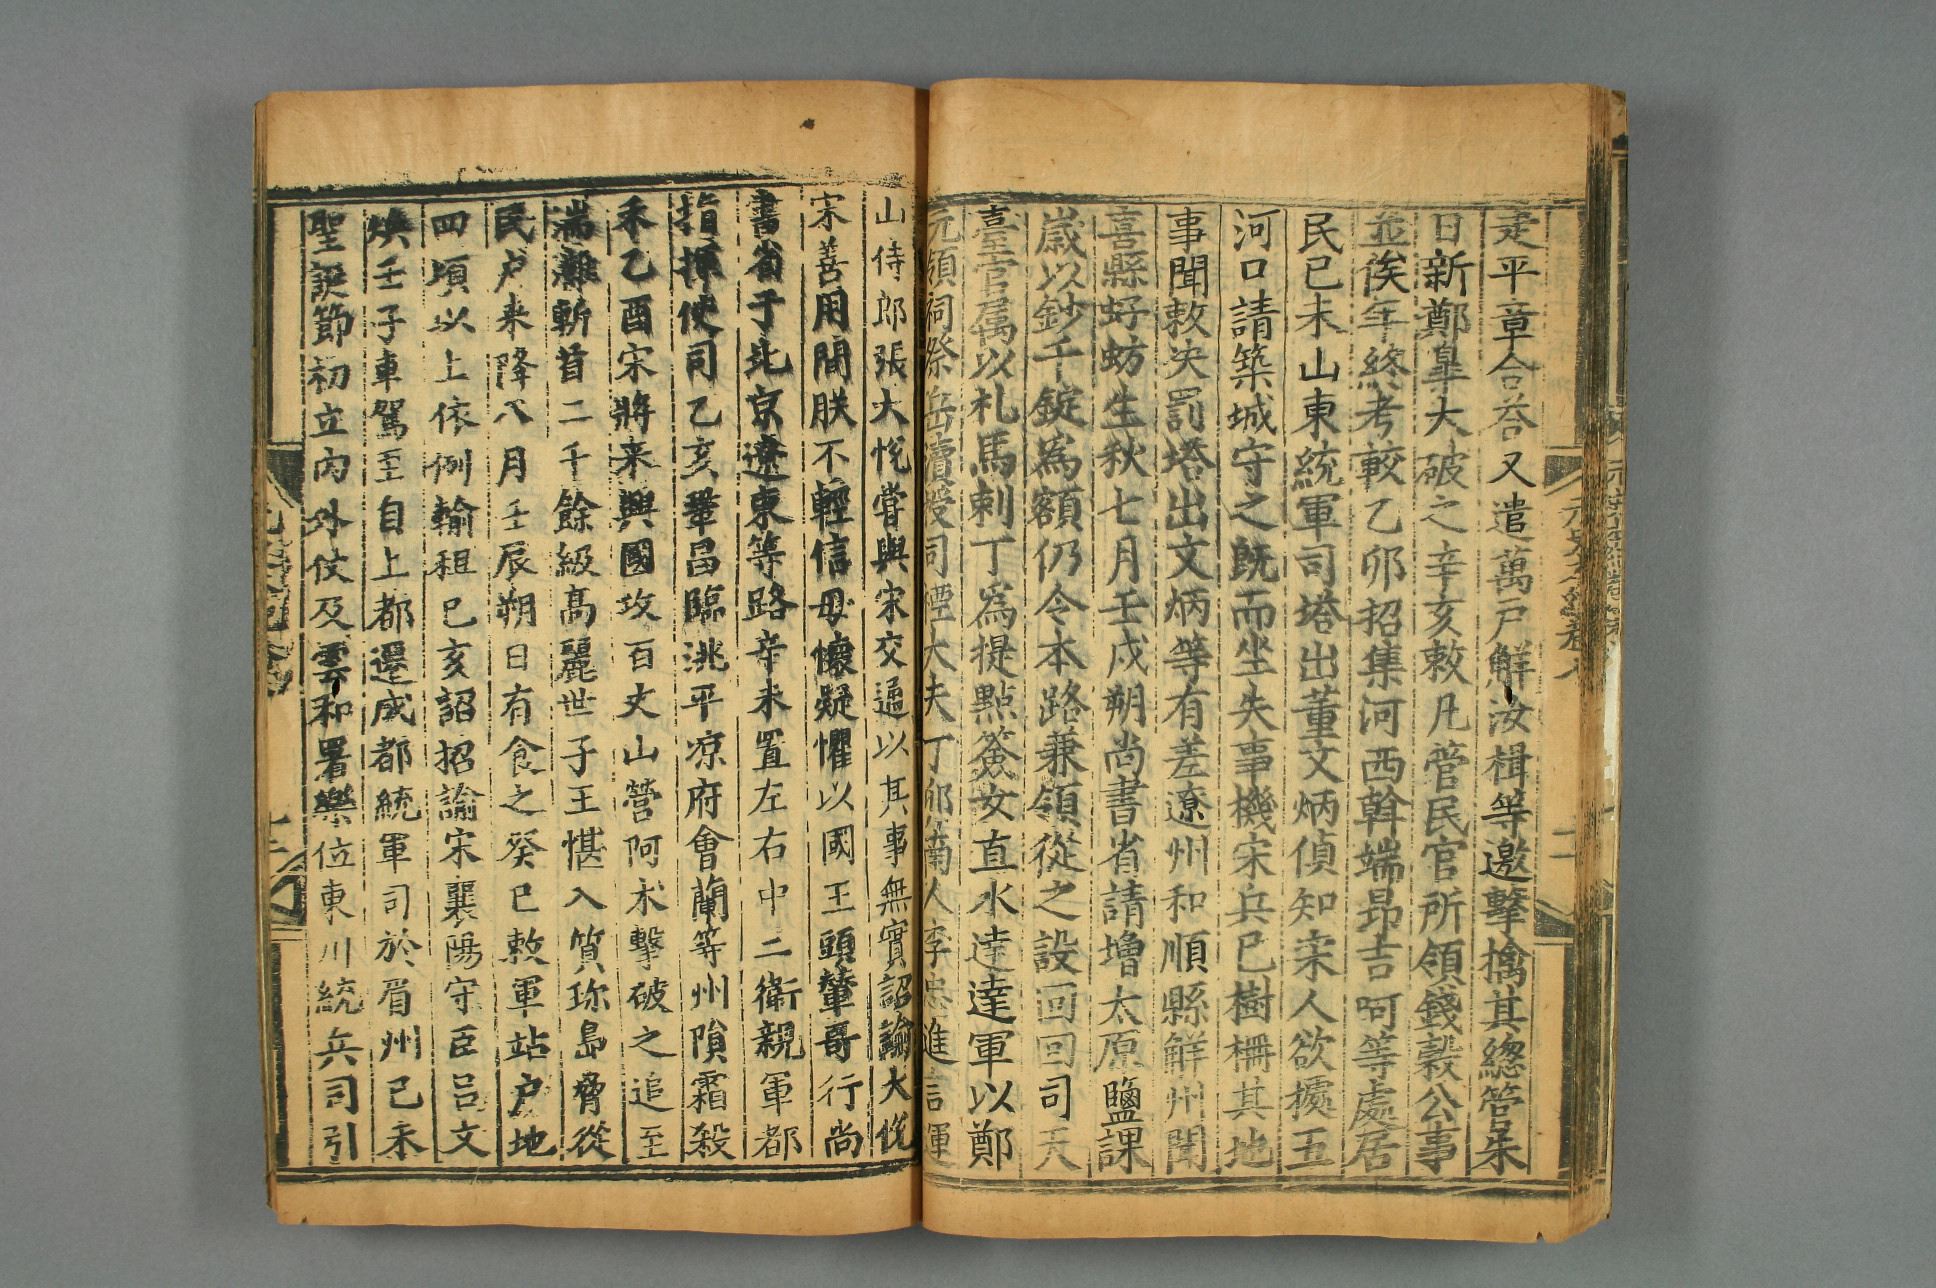 走平章合荅又遣萬戶解汝楫等邀擊擒其總管朱
日新鄭皐大破之辛亥敕凡管民官所領錢穀公事
並俟年終考較乙卯招集河西斡端昂吉呵等處居
民己未山東統軍司塔出董文炳偵知宋人欲據五
河口請築城守之旣而坐失事機宋兵已樹柵其地
事聞敕决罰塔出文炳等有差遼州和順縣解州聞
喜縣虸蚄生秋七月壬戌朔尚書省請增太原鹽課
歲以鈔千錠爲額仍令本路兼領從之設回回司天
臺官属以札馬剌丁爲提點簽女直水達達軍以鄭
元領祠祭岳瀆授司禋大夫丁卯南人李忠進言運
山侍郎張大悅嘗與宋交通以其事無實詔諭大悅
宋善用間朕不輕信毋懷疑懼以國王頭輦哥行尚
書省于北京遼東等路辛未置左右中三衛親軍都
指揮使司乙亥鞏昌臨洮平凉府會蘭等州隕霜殺
禾乙酉宋將来興國攻百丈山營阿朮擊破之追至
湍灘斬首二千餘級高麗世子王愖入質珎島脅從
民戶来降八月壬辰朔日有食之癸巳敕軍站户地
四頃以上依例輸租己亥詔招諭宋襄陽守臣吕文
煥壬子車駕至自上都遷成都統軍司於眉州己未
聖誕節初立內外仗及雲和署樂位東川統兵司引